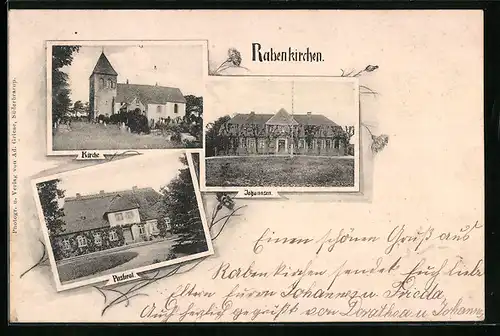 Rabenkirchen.
Kirche
Johannsen.
Pastorat
Photogr. u. Verlag von Ad. Greiner, Süderbrarup.
Einen schönen Gruß aus
Rabenkirchen sendet Euch liebe
Eltern Euren Johannes u. Frieda
Auch herzlich gegrüßt von Dorathea u Johann